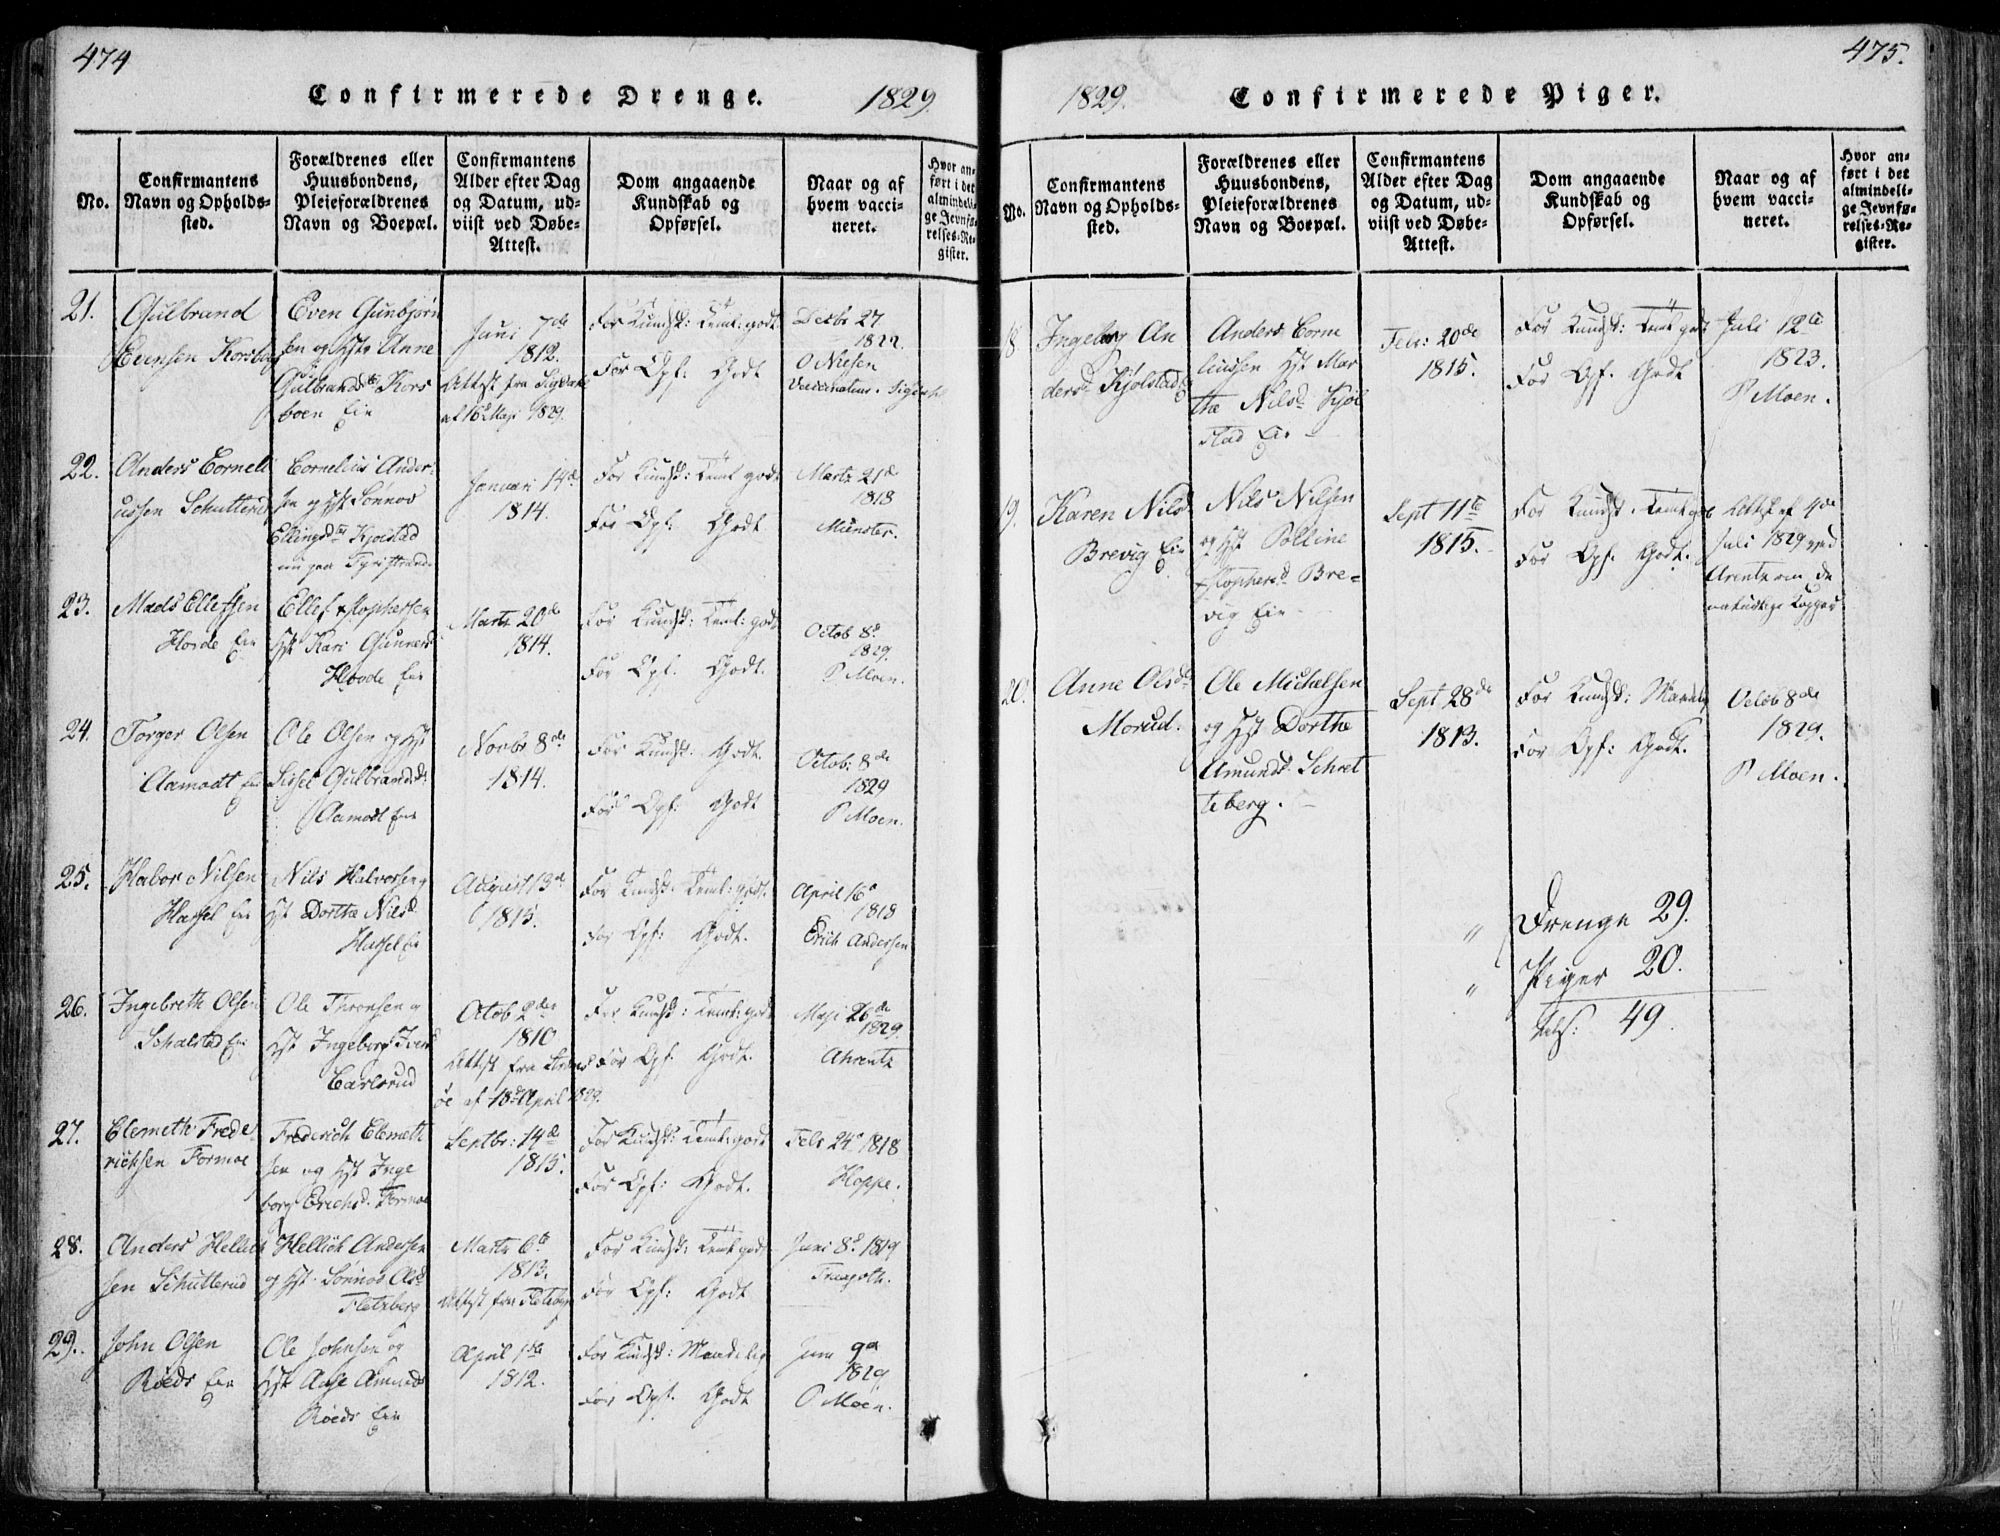 474
Confirmerede Drenge.
1829.
No.
Confirmantens Navn og Opholds-sted.
Forældrenes eller Huusbondens, Pleieforældrenes Navn og Boepæl.
Confirmantens Alder efter Dag og Datum, ud-viist ved Døbe-Attest.
Dom angaaende Kundskab og Opførsel.
Naar og af hvem vacci-neret.
Hvor an-ført i det almindeli-ge Jevnfø-relses-Re-gister.
21.
Gulbrand
Evensen
Even Gunbjørn
sen og Hst Anne
Gulbrandsd. Kors
boen Eie
Juni 7de
1812.
Attest fra Sigdal
af 16d Maji 1829.
For Kundsk: Teml: godt
For Opf. Godt
Decbr 27
1822.
O Nielsen
22.
Anders Corneli
ussen Schutterud
Cornelius Ander-
sen og Hst Sønnov
Ellingsd. Kjolstad
nu paa Tyristrand
Januari 14de
1814.
For Kundsk: Teml godt
For Opf. Godt.
Martz 21d
1818
Münster.
23.
Mads Ellefsen
Horde Eie
Ellef Xstophersen
Hst Kari Gunnersd
Hovde Eie
Martz 20de
1814.
For Kundsk: Teml: godt
For Opf. Godt.
Octob 8d
1829.
P Moen.
24.
Torger Olsen
Aamodt Eie
Ole Olsen og Hst
Sissel Gulbrandsd.
Aamodt Eie
Novbr 8de
1814.
For Kundsk: Godt.
For Opf: Godt
Octob: 8de
1829
P Moen.
25.
Habor Nilsen
Hassel Eie
Nils Halvorsen og
Hst Dorthe Nilsd.
Hassel Eie
August 13de
1815.
For Kundsk: Teml: godt.
For Opf: Godt.
April 16d
1818
Erich Andersen
26.
Ingebreth Olsen
Schalstad Eie
Ole Thronsen og
Hst Ingeborg Iversd
Carlsrud
Octob 2den
1810
Attest fra
af 18d April 1829.
For Kundsk: Teml: godt
For Opf. Godt.
Maji 26de
1829.
Ahrentz
27.
Clemeth Frede
richsen Formoe
Frederich Clemeth
sen og Hst Inge
borg Erichsd. Formoe
Septbr: 14de
1815.
For Kundsk: Teml: godt
For Opf: Godt.
Febr 24d 1818
Hoppe.
28.
Anders Hellich
sen Schutterud
Hellich Andersen
og Hst. Sønnov Olsd
Fletzberg
Martz 6te
1813.
Attest fra Fletzberg
For Kundsk: Teml godt
For Opf: Godt
Juni 8d 1819
29.
John Olsen
Røeds Eie
Ole Johnsen og
Hst Aase Amunds
Røeds Eie
April 1ste
1812.
For Kundsk: Maadelig
For Opf. Godt
Juni 9de
1829
P Moen.
475.
1829.
Confirmerede Piger.
No.
Confirmantens Navn og Opholds-sted.
Forældrenes eller Huusbondens, Pleieforældrenes Navn og Boepæl.
Confirmantens Alder efter Dag og Datum, ud-viist ved Døbe-Attest.
Dom angaaende Kundskab og Opførsel.
Naar og af hvem vacci-neret.
Hvor an-ført i det almindeli-ge Jevnfø-relses-Re-gister.
18
Ingebg An
dersd Kjølstad
Anders Corne
liussen Hst Mar
the Nilsd Kjøl
stad Eie
Febr: 20de
1815.
For Kundsk: Teml godt
For Opf. Godt
Juli 12te
1823.
P Moen.
19.
Karen Nilsd
Brevig Eie
Nils Nilsen
og Hst Polline
Xstophersd. Bre-
vig Eie
Sept 11te
1815.
For Kundsk. Teml godt
For Opf. Godt.
Attest af 4de
Juli 1829 ved
Arentz om de
naturlige Kopper
20.
Anne Olsd.
Morud.
Ole Michelsen
og Hst Dorthe
Amundsd Schret
teberg.
Sept 28de
1813.
For Kundsk: Maadelig
For Opf: Godt.
Octob 8de
1829.
P Moen.
" Drenge 29.
" Piger 20.
49.